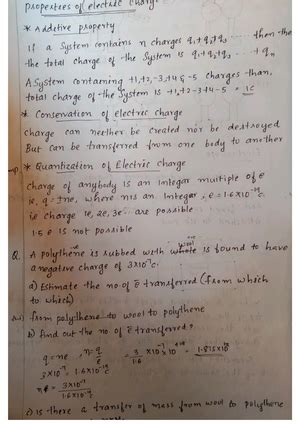 properties of electric charge
* Additive property
If a System contains n charges q1, q2, q3 ... then the
the total charge of the System is q1+q2+q3 ... + qn
A System containing +1, +2, -3, +4 & -5 charges than,
total charge of the System is +1+2-3+4-5 = 1C
* Conservation of electric charge
Charge can neither be created nor be destroyed
But can be transferred from one body to another
imp * Quantization of Electric charge
Charge of anybody is an integar multiple of e
ie, q = ±ne, where n is an integar, e = 1.6×10⁻¹⁹C
ie charge 1e, 2e, 3e... are possible
1.5 e is not possible
wool
Q. A polythene is rubbed with is found to have
a negative charge of 3×10⁻⁷C.
a) Estimate the no of e⁻ transferred (from which
to which)
from polythene to wool to polythene
b) Find out the no of e⁻ transferred?
q = ne, n = q/e
3×10⁻⁷ = 1.6×10⁻¹⁹
= 3/1.6 ×10⁻⁷×10⁺¹⁹ =
n = 3×10⁻⁷/1.6×10⁻¹⁹
c) is there a transfer of mass from wool to polythene